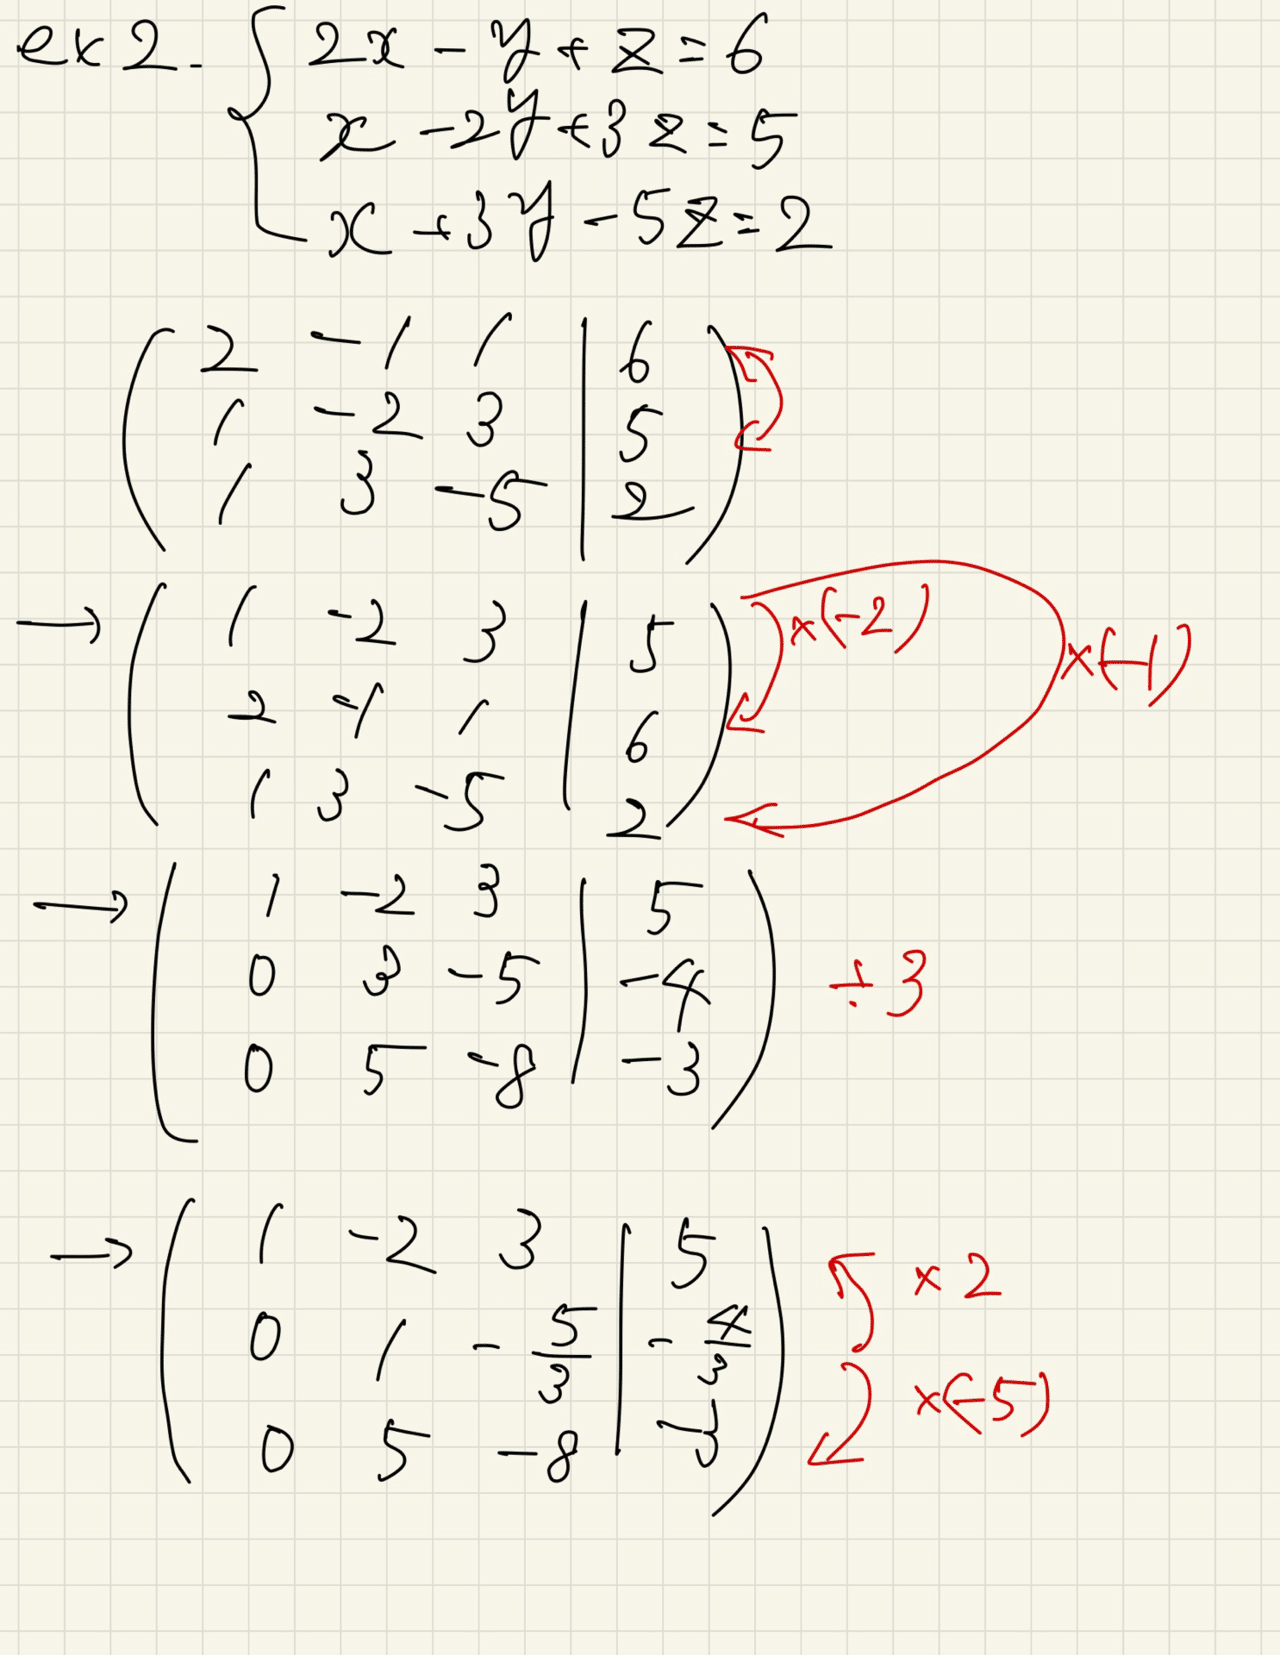 ex 2. { 2x - y + z = 6
x - 2y + 3z = 5
x + 3y - 5z = 2
( 2 -1 1 | 6 )
1 -2 3 | 5
1 3 -5 | 2
→ ( 1 -2 3 | 5 ) ×(-2) ×(-1)
2 -1 1 | 6
1 3 -5 | 2
→ ( 1 -2 3 | 5 )
0 3 -5 | -4 ÷3
0 5 -8 | -3
→ ( 1 -2 3 | 5 ) ×2
0 1 -5/3 | -4/3
0 5 -8 | -3 ×(-5)